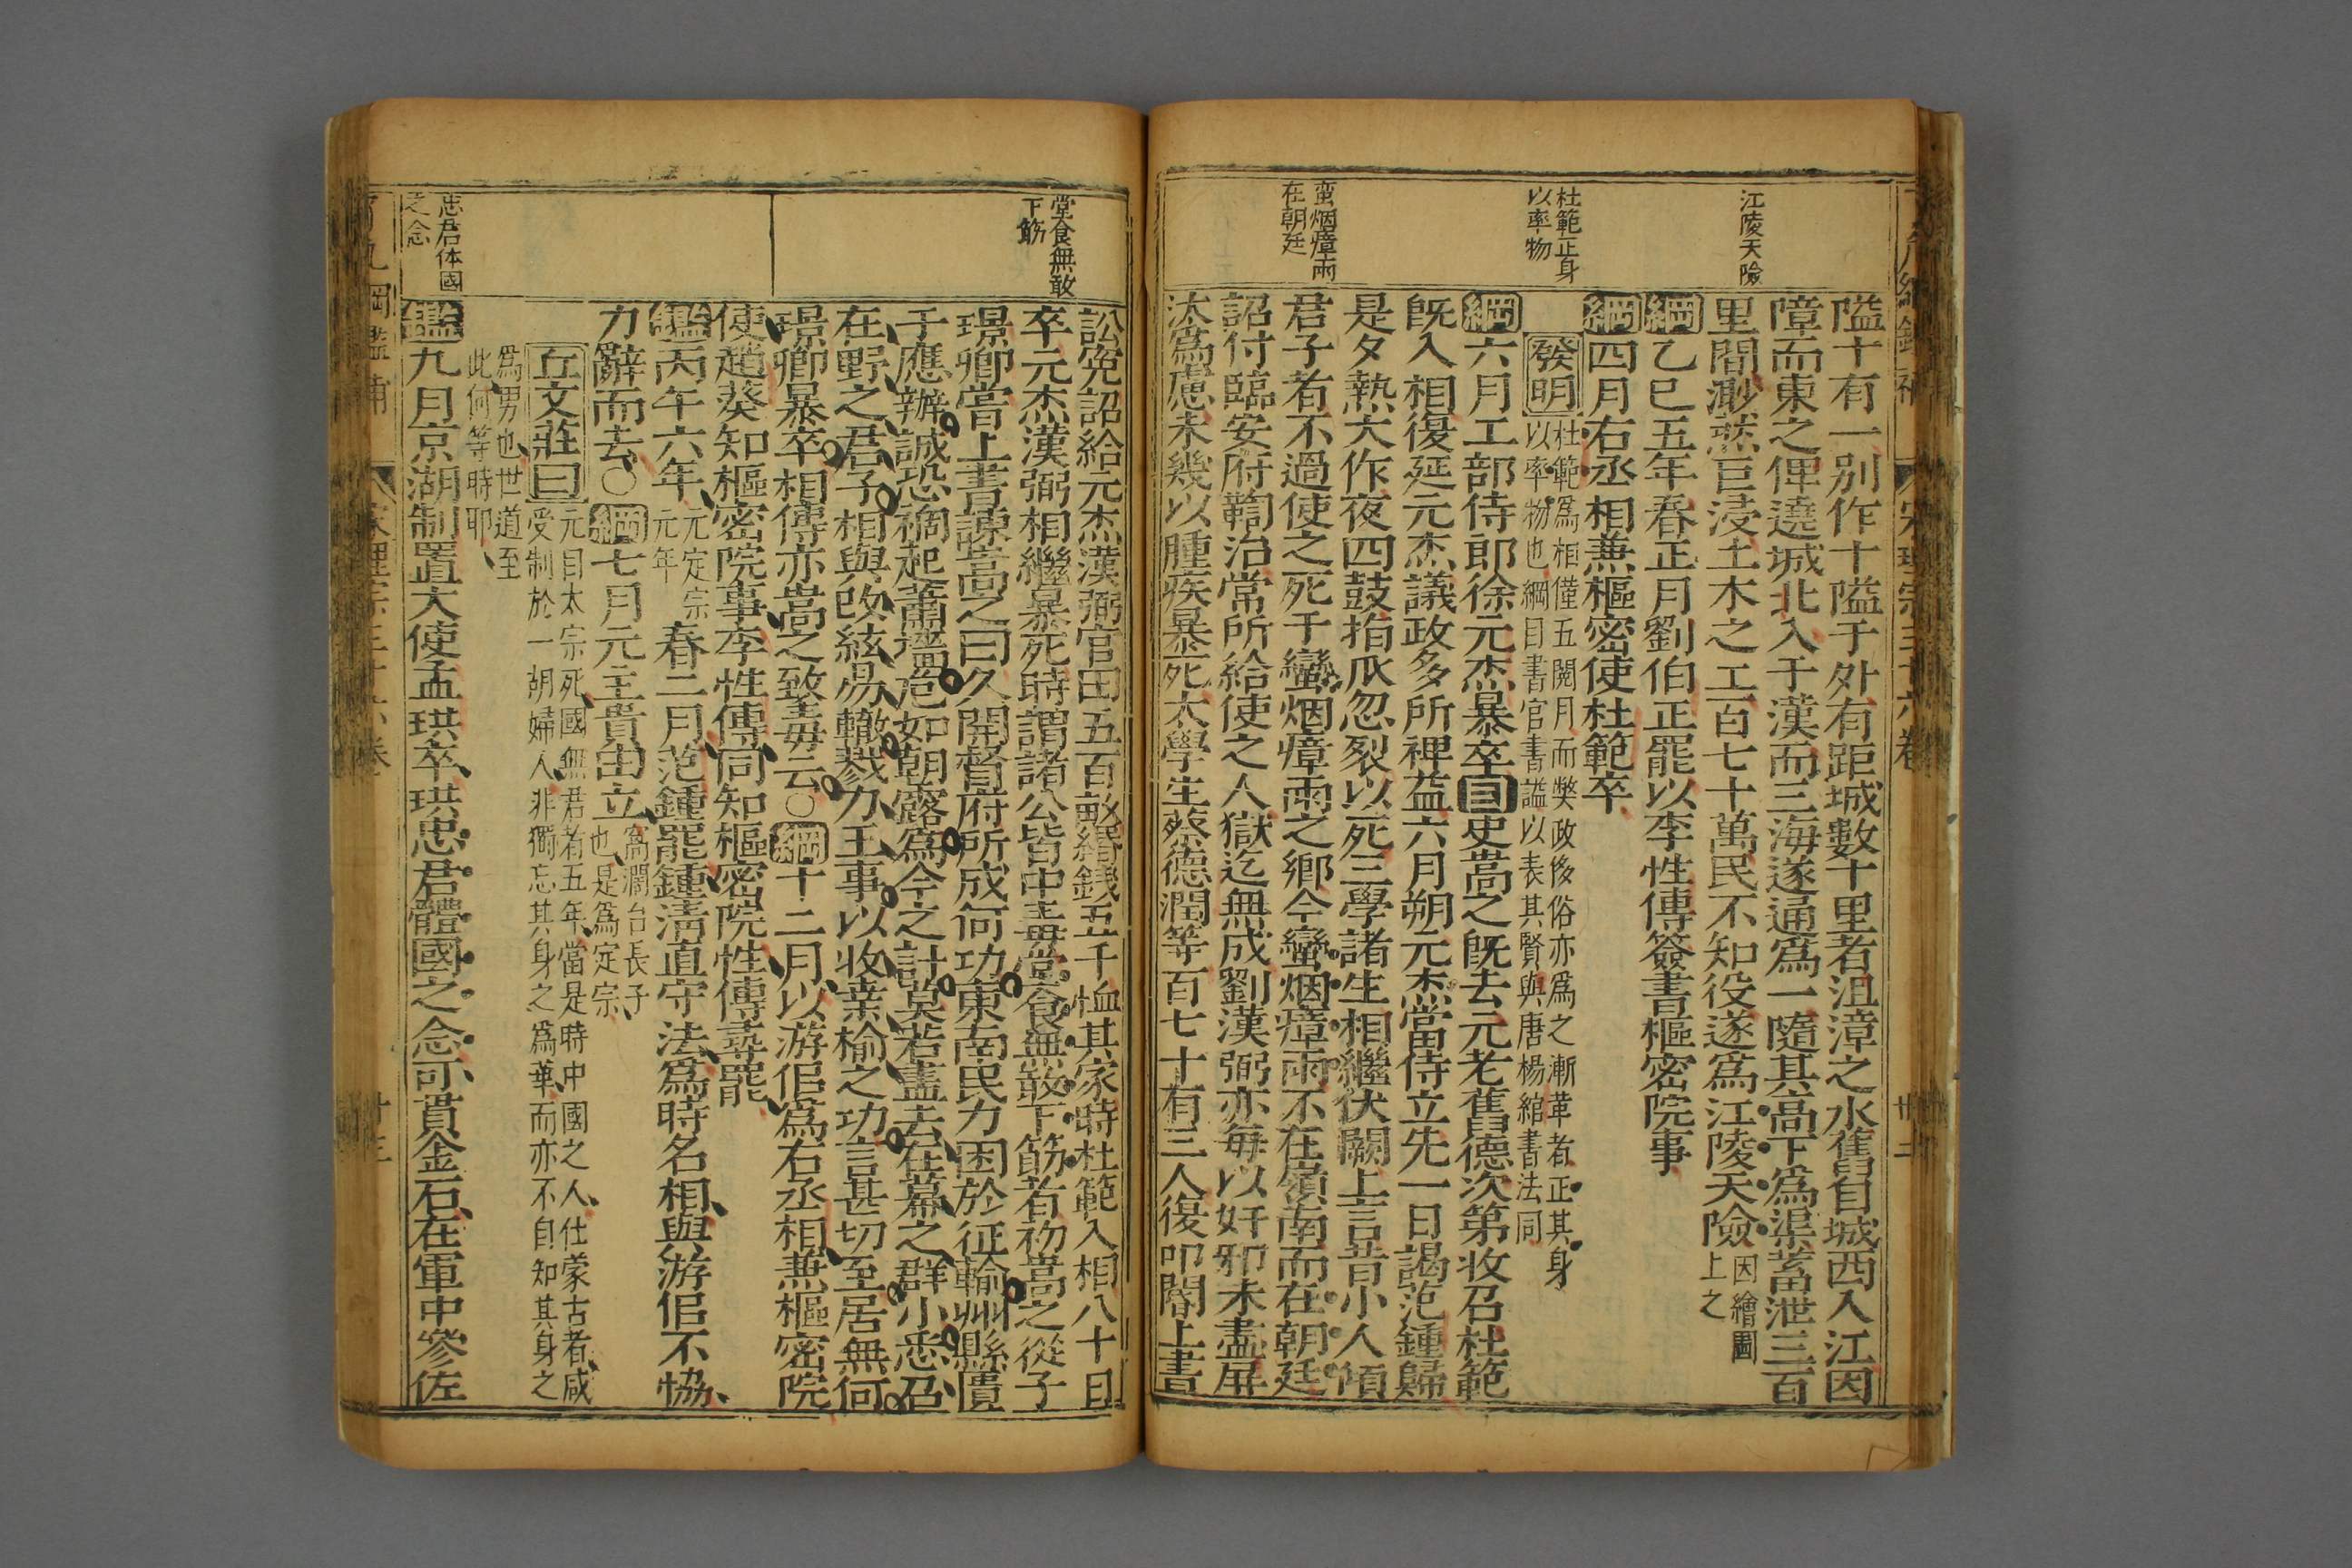 江陵天險
杜範正身
以率物
蛮烟瘴雨
在朝廷
隘十有一別作十隘于外有距城數十里者沮漳之水舊自城西入江因
障而東之俾遶城北入于漢而三海遂通為一隨其高下為渠蓄泄三百
里間渺然巨浸土木之工百七十萬民不知役遂為江陵天險因繪圖上之
綱乙巳五年春正月劉伯正罷以李性傳簽書樞密院事
綱四月右丞相兼樞密使杜範卒
發明杜範為相僅五閱月而獘政後俗亦為之漸革者正其身
以率物也綱目書官書謚以表其賢與唐楊綰書法同
綱六月工部侍郎徐元杰暴卒目史嵩之旣去元老舊德次第收召杜範
旣入相復延元杰議政多所裨益六月朔元杰當侍立先一日謁范鍾歸
是夕熱大作夜四鼓指爪忽裂以死三學諸生相繼伏闕上言昔小人傾
君子者不過使之死于蠻烟瘴雨之鄉今蠻烟瘴雨不在嶺南而在朝廷
詔付臨安府鞫治常所給使之人獄迄無成劉漢弼亦每以奸邪未盡屏
汰為慮未幾以腫疾暴死太學生蔡德潤等百七十有三人復叩閽上書
堂食無敢
下筯
忠君体國
之念
訟寃詔給元杰漢弼官田五百畝緡錢五千恤其家時杜範入相八十日
卒元杰漢弼相繼暴死時謂諸公皆中毒堂食無敢下筯者初嵩之從子
璟卿嘗上書諫嵩之曰久開督府所成何功東南民力困於征輸州縣匱
于應辦誠恐禍起蕭墻危如朝露為今之計莫若盡去在幕之群小悉召
在野之君子相與改絃易轍戮力王事以收桒榆之功言甚切至居無何
璟卿暴卒相傳亦嵩之致毒云○綱十二月以游侣為右丞相兼樞密院
使趙葵知樞密院事李性傳同知樞密院性傳尋罷
鑑丙午六年元定宗元年春二月范鍾罷鍾清直守法為時名相與游侣不恊
力辭而去○綱七月元主貴由立窩濶台長子也是為定宗
丘文莊曰元自太宗死國無君者五年當是時中國之人仕蒙古者咸
受制於一胡婦人非獨忘其身之為華而亦不自知其身之
為男也世道至
此何等時耶
鑑九月京湖制置大使孟珙卒珙忠君體國之念可貫金石在軍中參佐